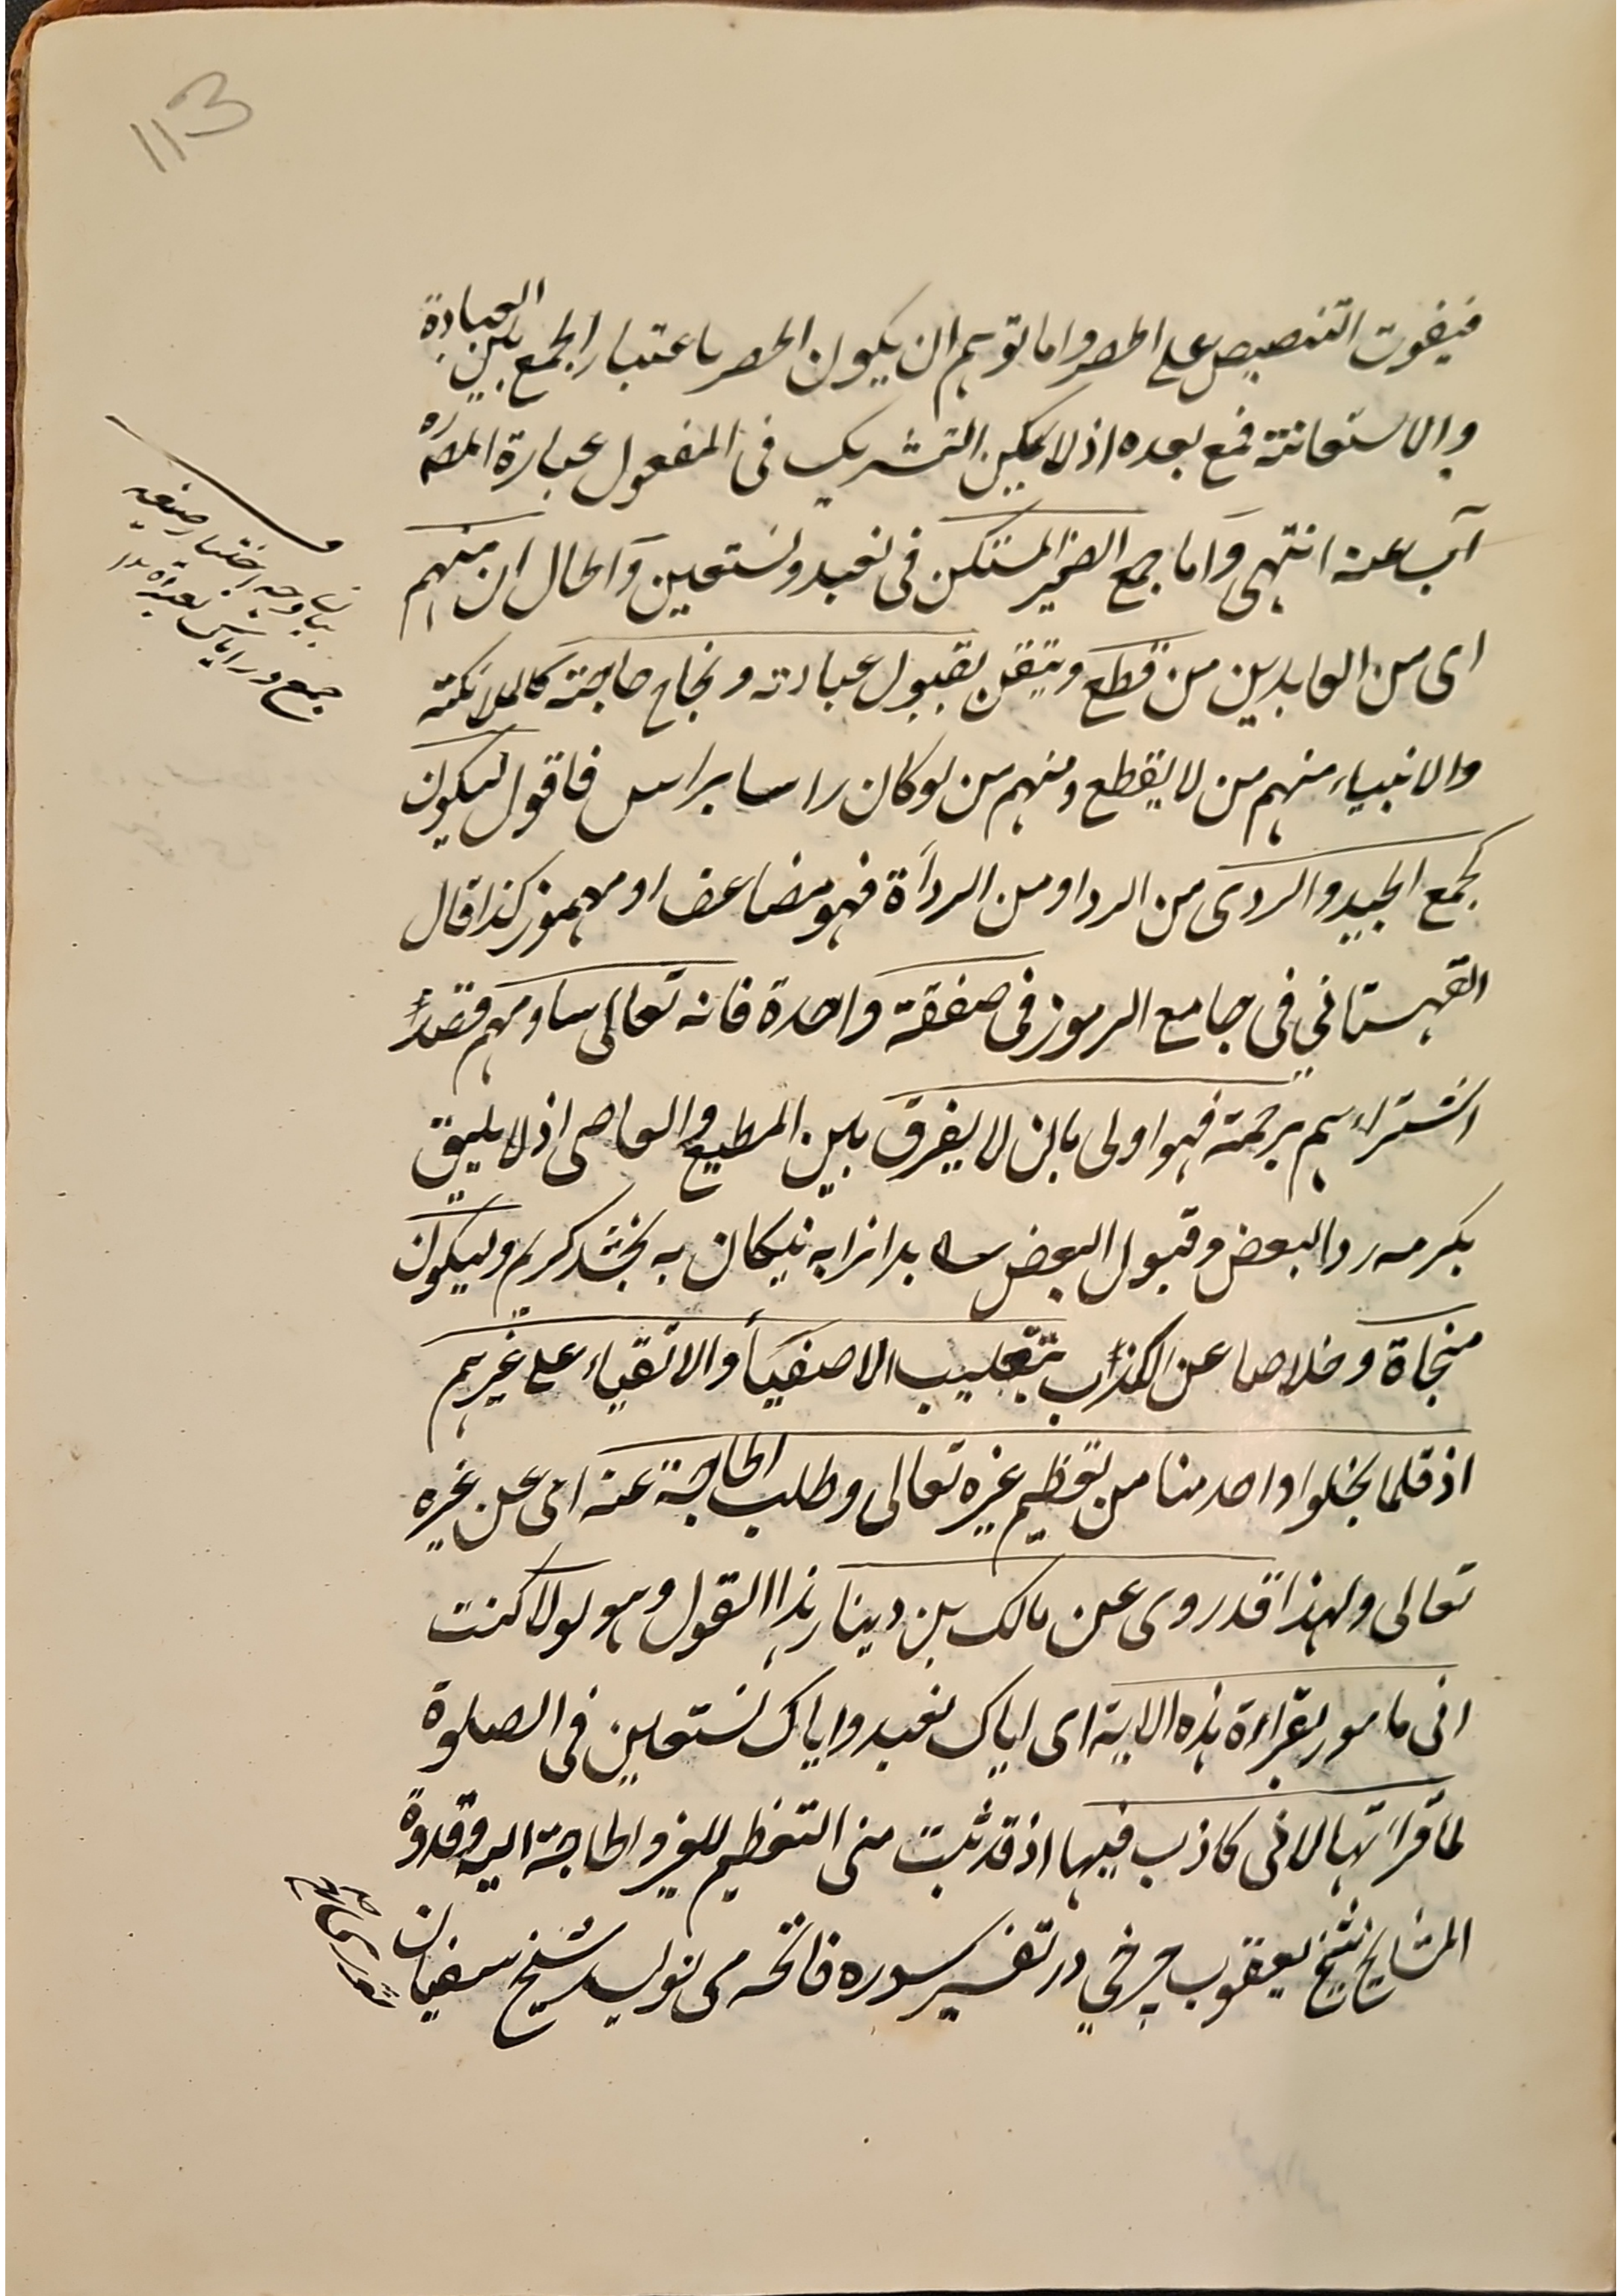 113
فيفوت التنصيص على الحصر واما توهم ان يكون الحصر باعتبار الجمع بين العبادة
والاستعانة فمع بعده اذ لا يمكن التشريك فى المفعول عبارة المصره
آب عنه انتهى وآما جمع الضمير المستكن فى نعبد ونستعين وآلحال ان منهم
اى من العابدين من قطع ويتقن بقبول عبادته ونجاح حاجته كالملائكته
والانبياء منهم من لا يقطع ومنهم من لو كان راسا براس فاقول ليكون
كجمع الجيد والردى من الردا ومن الردأة فهو مضاعف او مهموز كذا قال
القهستاني فى جامع الرموز فى صفقة واحدة فانه تعالى ساومهم قصدًا
اشتراءهم برحمته فهو اولى بان لا يفرق بين المطيع والعاصى اذ لا يليق
بكرمه رد البعض وقبول البعض بدانرا به نيكان به بخشد كريم وليكون
منجاة وخلاصا عن الكذب بتغليب الاصفيأ والاتقياء على غيرهم
اذ قلما يخلوا واحد منا من تعظيم غيره تعالى وطلب الحاجة عنه اى عن غيره
تعالى ولهذا قد روى عن مالك بن دينار هذا القول وهو لولا كنت
انى مامور بقراءة هذه الاية اى اياك نعبد واياك نستعين فى الصلوة
لما قرأتها لانى كاذب فيها اذ قد ثبت منى التعظيم للغير والحاجة اليه وقدوة
المشايخ شيخ يعقوب چرخي در تفسير سوره فاتحه مى نويسد شيخ سفيان
بيان وجه اختيار صيغه
جمع در اياك نعبد